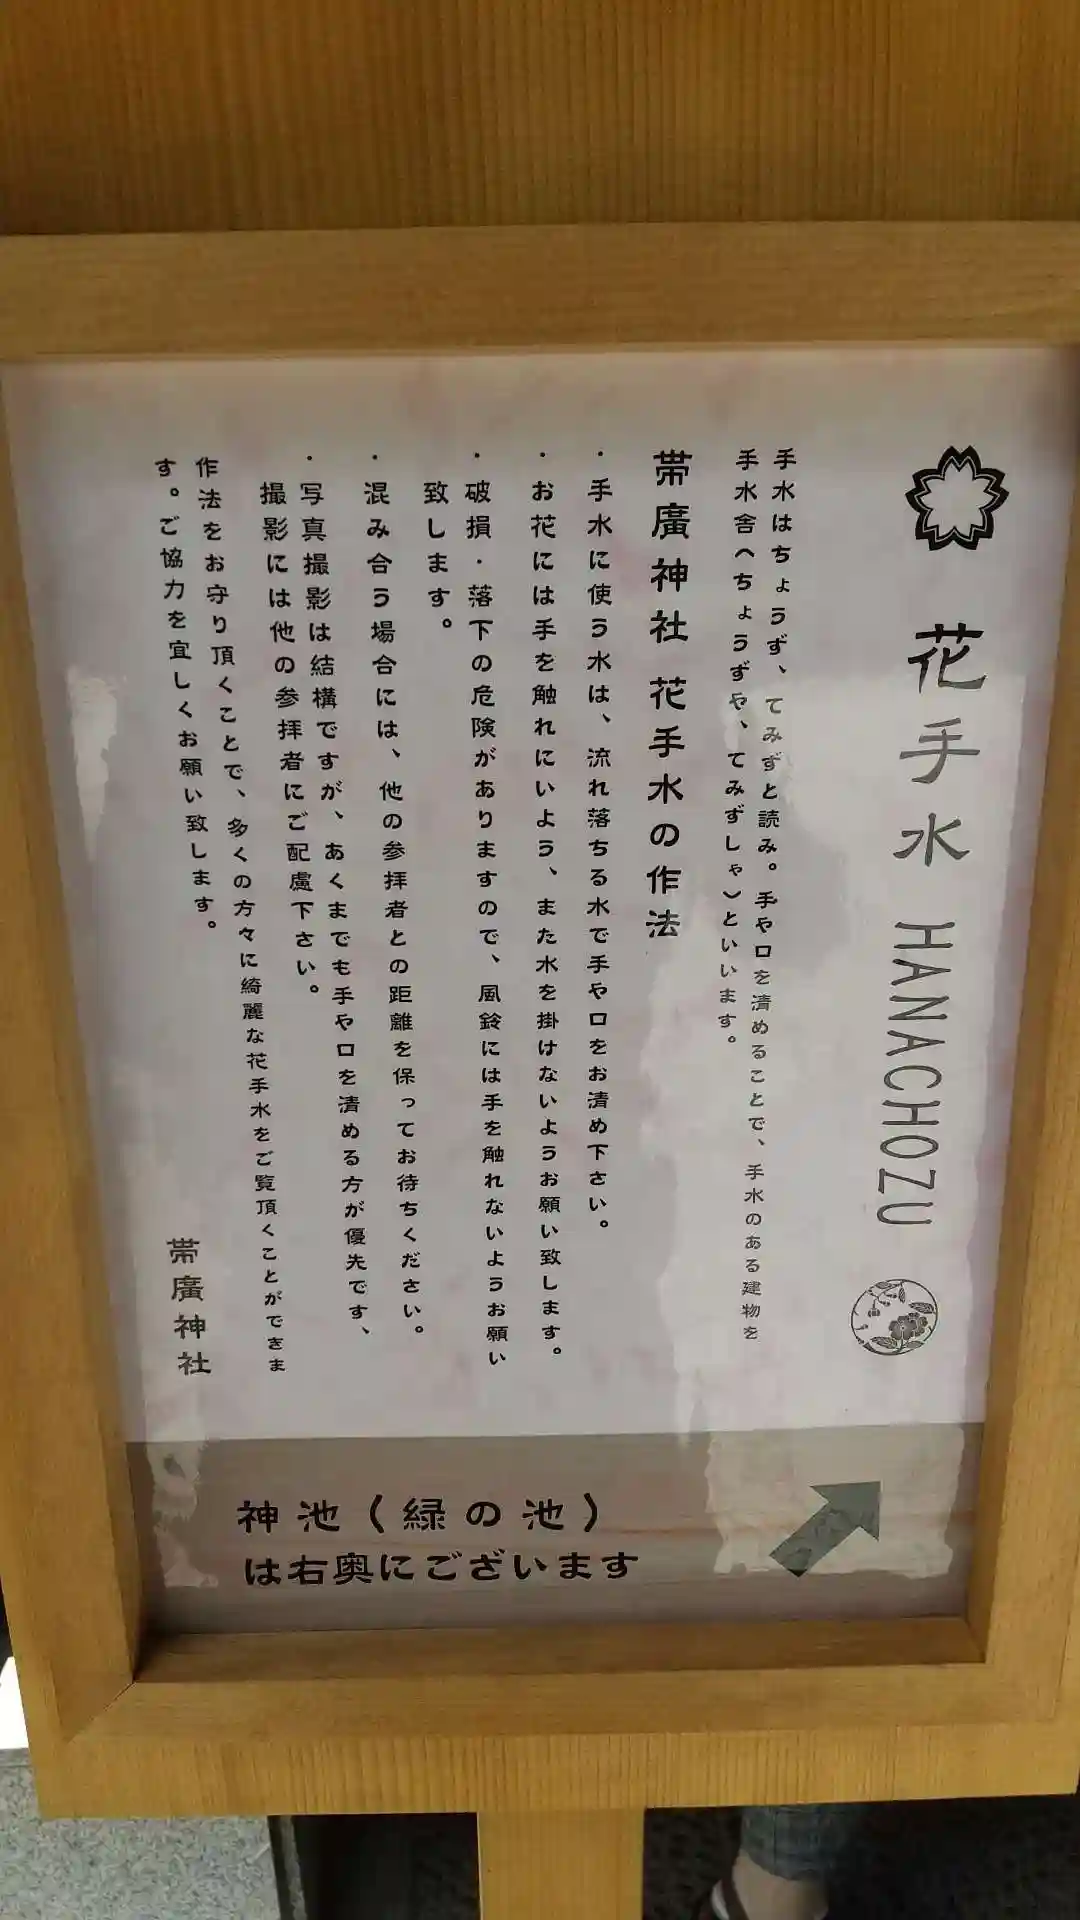 花手水 HANACHOZU
手水はちょうず、てみずと読み。手や口を清めることで、手水のある建物を
手水舎(ちょうずや、てみずしゃ)といいます。
帯廣神社 花手水の作法
・手水に使う水は、流れ落ちる水で手や口をお清め下さい。
・お花には手を触れにいよう、また水を掛けないようお願い致します。
・破損・落下の危険がありますので、風鈴には手を触れないようお願い
致します。
・混み合う場合には、他の参拝者との距離を保ってお待ちください。
・写真撮影は結構ですが、あくまでも手や口を清める方が優先です、
撮影には他の参拝者にご配慮下さい。
作法をお守り頂くことで、多くの方々に綺麗な花手水をご覧頂くことができま
す。ご協力を宜しくお願い致します。
帯廣神社
神池(緑の池)
は右奥にございます